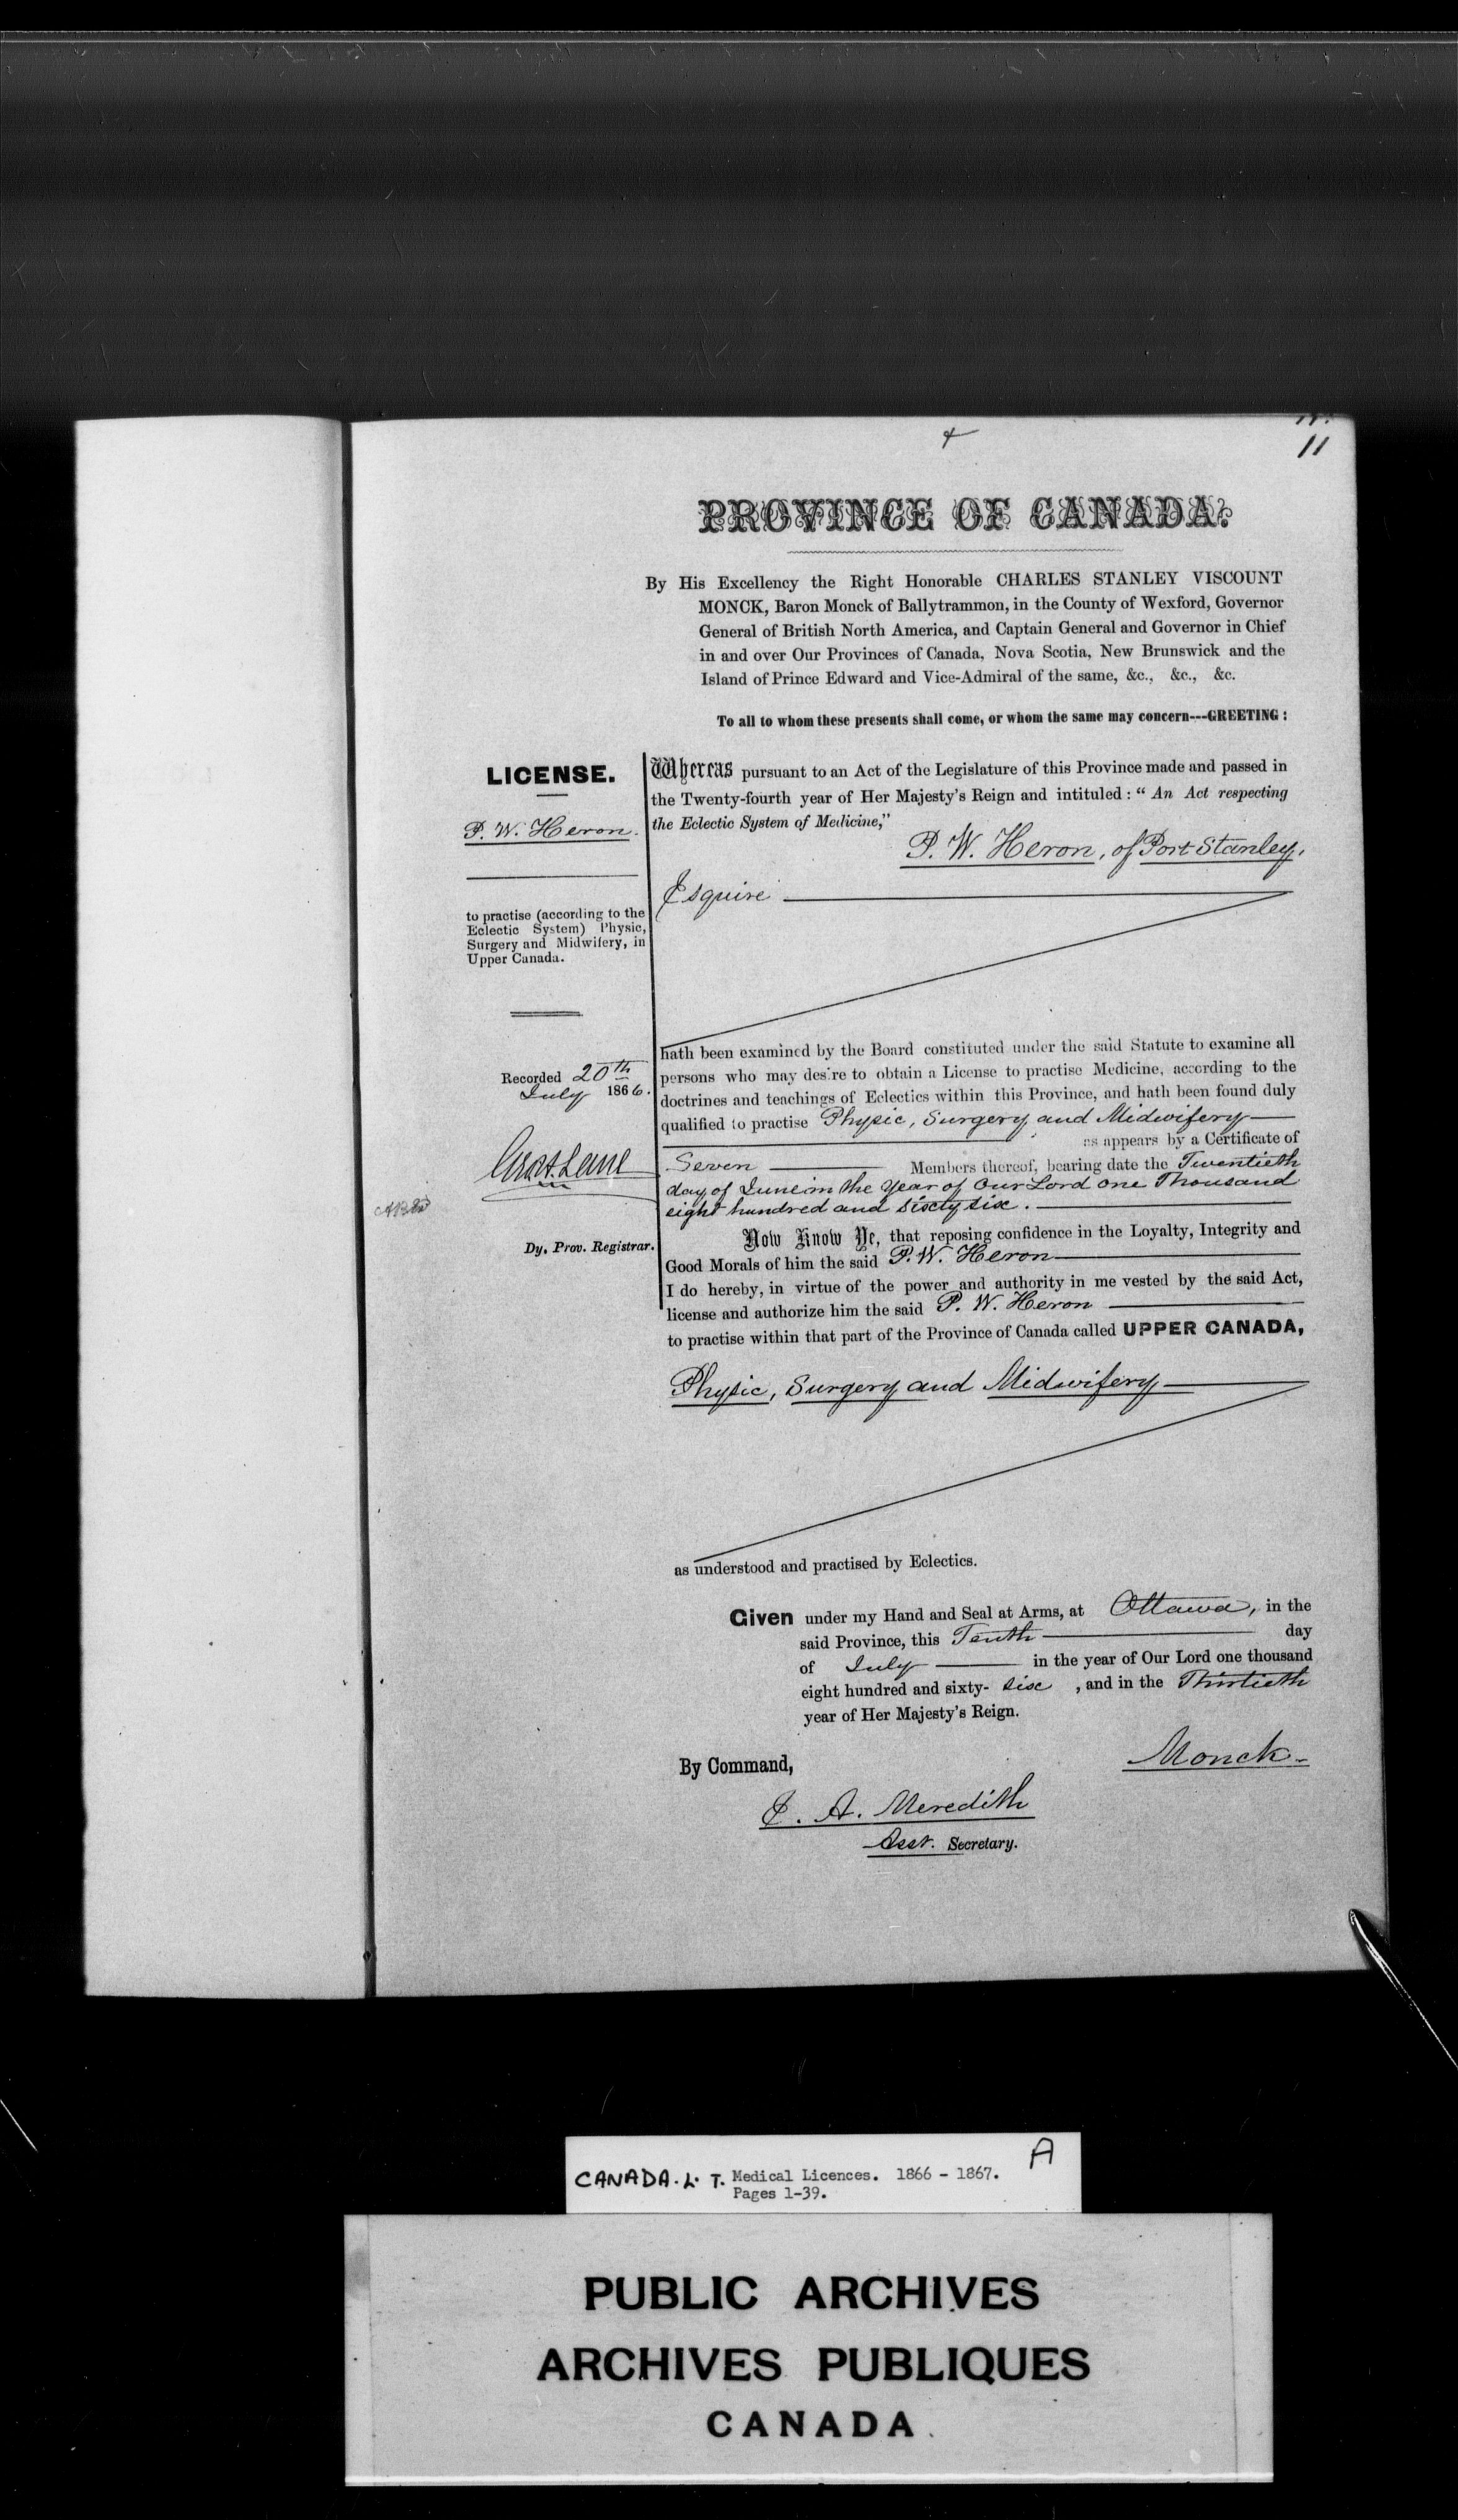 11
PROVINCE OF CANADA.
By His Excellency the Right Honorable CHARLES STANLEY VISCOUNT
MONCK, Baron Monck of Ballytrammon, in the County of Wexford, Governor
General of British North America, and Captain General and Governor in Chief
in and over Our Provinces of Canada, Nova Scotia, New Brunswick and the
Island of Prince Edward and Vice-Admiral of the same, &c., &c., &c.
To all to whom these presents shall come, or whom the same may concern---GREETING:
LICENSE.
P. W. Heron.
to practise (according to the
Eclectic System) Physic,
Surgery and Midwifery, in
Upper Canada.
Recorded 20th
July 1866.
Dy. Prov. Registrar.
Whereas pursuant to an Act of the Legislature of this Province made and passed in
the Twenty-fourth year of Her Majesty's Reign and intituled: "An Act respecting
the Eclectic System of Medicine,"
P. W. Heron, of Port Stanley,
Esquire
hath been examined by the Board constituted under the said Statute to examine all
persons who may desire to obtain a License to practise Medicine, according to the
doctrines and teachings of Eclectics within this Province, and hath been found duly
qualified to practise Physic, Surgery and Midwifery
as appears by a Certificate of
Seven Members thereof, bearing date the Twentieth
day of June in the Year of Our Lord One Thousand
eight hundred and sixty six.
Now Know Ye, that reposing confidence in the Loyalty, Integrity and
Good Morals of him the said P. W. Heron
I do hereby, in virtue of the power and authority in me vested by the said Act,
license and authorize him the said P. W. Heron
to practise within that part of the Province of Canada called UPPER CANADA,
Physic, Surgery and Midwifery
as understood and practised by Eclectics.
Given under my Hand and Seal at Arms, at Ottawa, in the
said Province, this Tenth day
of July in the year of Our Lord one thousand
eight hundred and sixty- six , and in the Thirtieth
year of Her Majesty's Reign.
Monck
By Command,
E. A. Meredith
Asst. Secretary.
CANADA. L. T. Medical Licences. 1866 - 1867. A
Pages 1-39.
PUBLIC ARCHIVES
ARCHIVES PUBLIQUES
CANADA